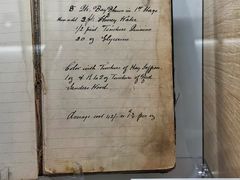 8 lbs. Bay Rhum in 1st Stage
then add 3 pts. Honey Water
1/2 pint Tincture Quassia
20 oz Glycerine
Color with Tincture of Hay Saffron
1 oz & 1 1/2 to 2 oz Tincture of Red
Sanders Wood.
Average cost
per oz